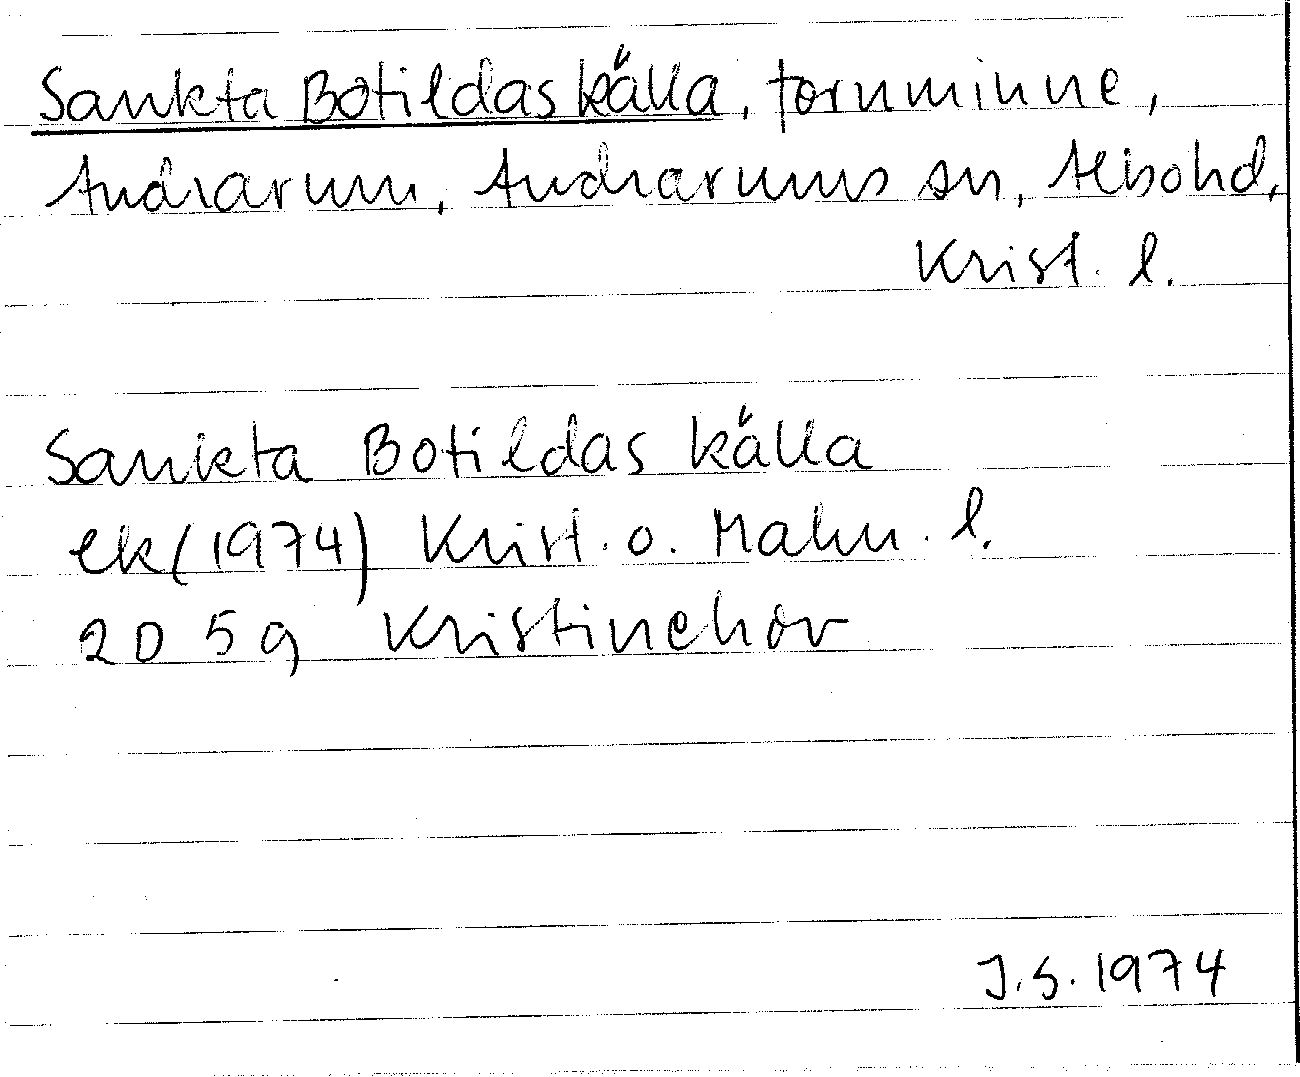 Sankta Botildas källa, fornminne,
Andrarum, Andrarums sn, Albohd,
Krist. l.
Sankta Botildas källa
ek (1974) Krist. o. Malm. l.
2D 5g Kristinehov
J.S. 1974